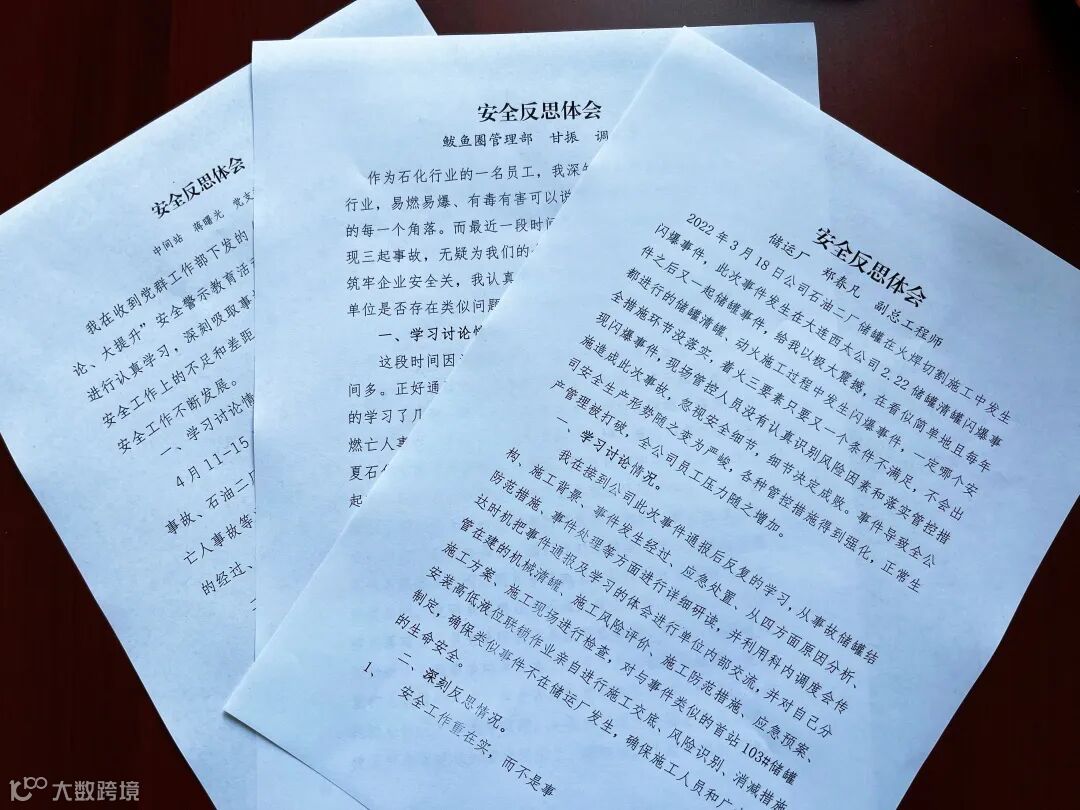 安全反思体会
中间站 蒋曙光 党支
我在收到党群工作部下发的
论、大提升”安全警示教育活动
进行认真学习，深刻吸取事
安全工作上的不足和差距
安全工作不断发展。
一、学习讨论情
4月11-15
事故、石油二厂
亡人事故等
的经过、
安全反思体会
鲅鱼圈管理部 甘振 调
作为石化行业的一名员工，我深
行业，易燃易爆、有毒有害可以说
的每一个角落。而最近一段时间
现三起事故，无疑为我们的
筑牢企业安全关，我认真
单位是否存在类似问题
一、学习讨论情
这段时间因
间多。正好通
的学习了几
燃亡人事
夏石
起
安全反思体会
储运厂 郑春凡 副总工程师
2022年3月18日公司石油二厂储罐在火焊切割施工中发生
闪爆事件，此次事件发生在大连西太公司2.22储罐清罐闪爆事
件之后又一起储罐事件，给我以极大震撼，在看似简单地且每年
都进行的储罐清罐、动火施工过程中发生闪爆事件，一定哪个安
全措施环节没落实，着火三要素只要又一个条件不满足，不会出
现闪爆事件，现场管控人员没有认真识别风险因素和落实管控措
施造成此次事故，忽视安全细节，细节决定成败。事件导致全公
司安全生产形势随之变为严峻，各种管控措施得到强化，正常生
产管理被打破，全公司员工压力随之增加。
一、学习讨论情况。
我在接到公司此次事件通报后反复的学习，从事故储罐结
构、施工背景、事件发生经过、应急处置、从四方面原因分析、
防范措施、事件处理等方面进行详细研读，并利用科内调度会传
达时机把事件通报及学习的体会进行单位内部交流，并对自己分
管在建的机械清罐、施工风险评价、施工防范措施、应急预案、
施工方案、施工现场进行检查，对与事件类似的首站103#储罐
安装高低液位联锁作业亲自进行施工交底、风险识别、消减措施
制定，确保类似事件不在储运厂发生，确保施工人员和广
的生命安全。
二、深刻反思情况。
1、 安全工作重在实，而不是事
大数跨境